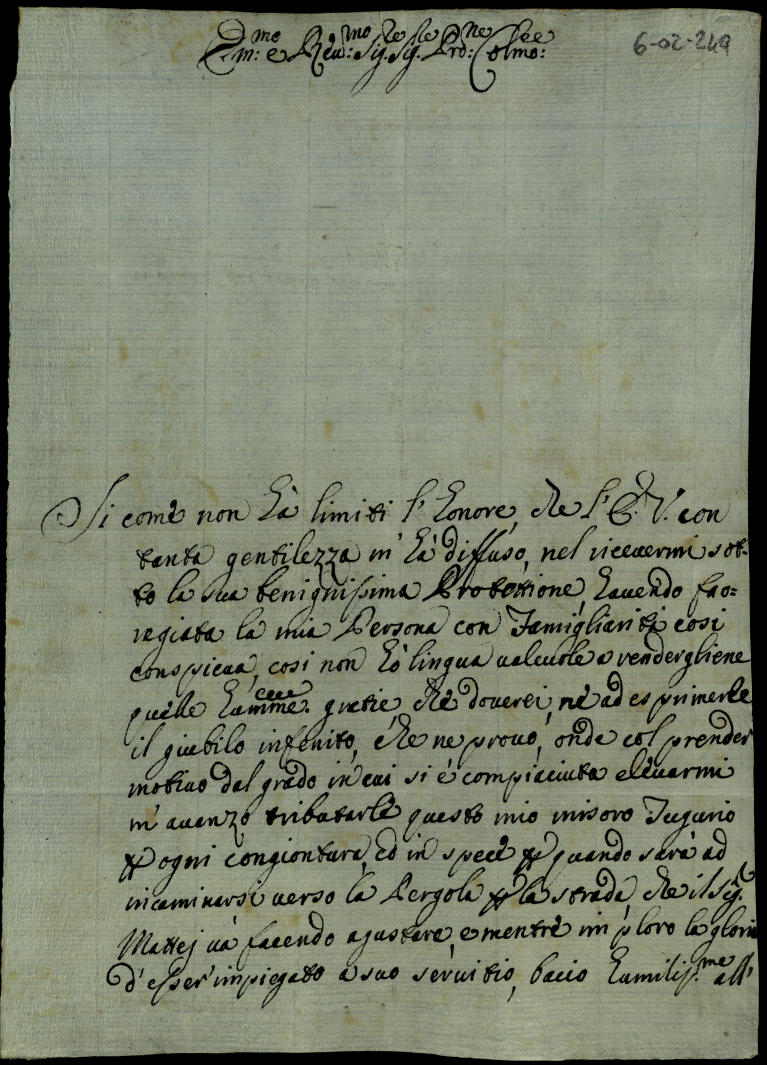 Em:mo e Reu:mo Sig.re Sig.re Prd:ne Colmo:
6-02-249
Si come non hà limiti l'honore, che l'E. V. con
tanta gentilezza m' hà diffuso, nel riceuermi sot-
to la sua benignissima Protettione, hauendo frè=
giata la mia Persona con Famigliarità così
conspicua, così non hò lingua ualeuole a rendergliene
quelle gratie chè douerei, nè ad esprimerle
il giubilo infenito, che ne prouo, onde col prender
motiuo dal grado in cui si è compiaciuta eleuarmi
m' auanzo tributarle questo mio misero Tugurio
ꝑ ogni congiontura, ed in specè ꝑ quando sarà ad
incaminarsi uerso la Pergola ꝑ la strada, che il Sig.r
Mattej uà facendo agustare, e mentrè imploro la gloria
d'esser impiegato a suo seruitio, bacio humiliss.me all'